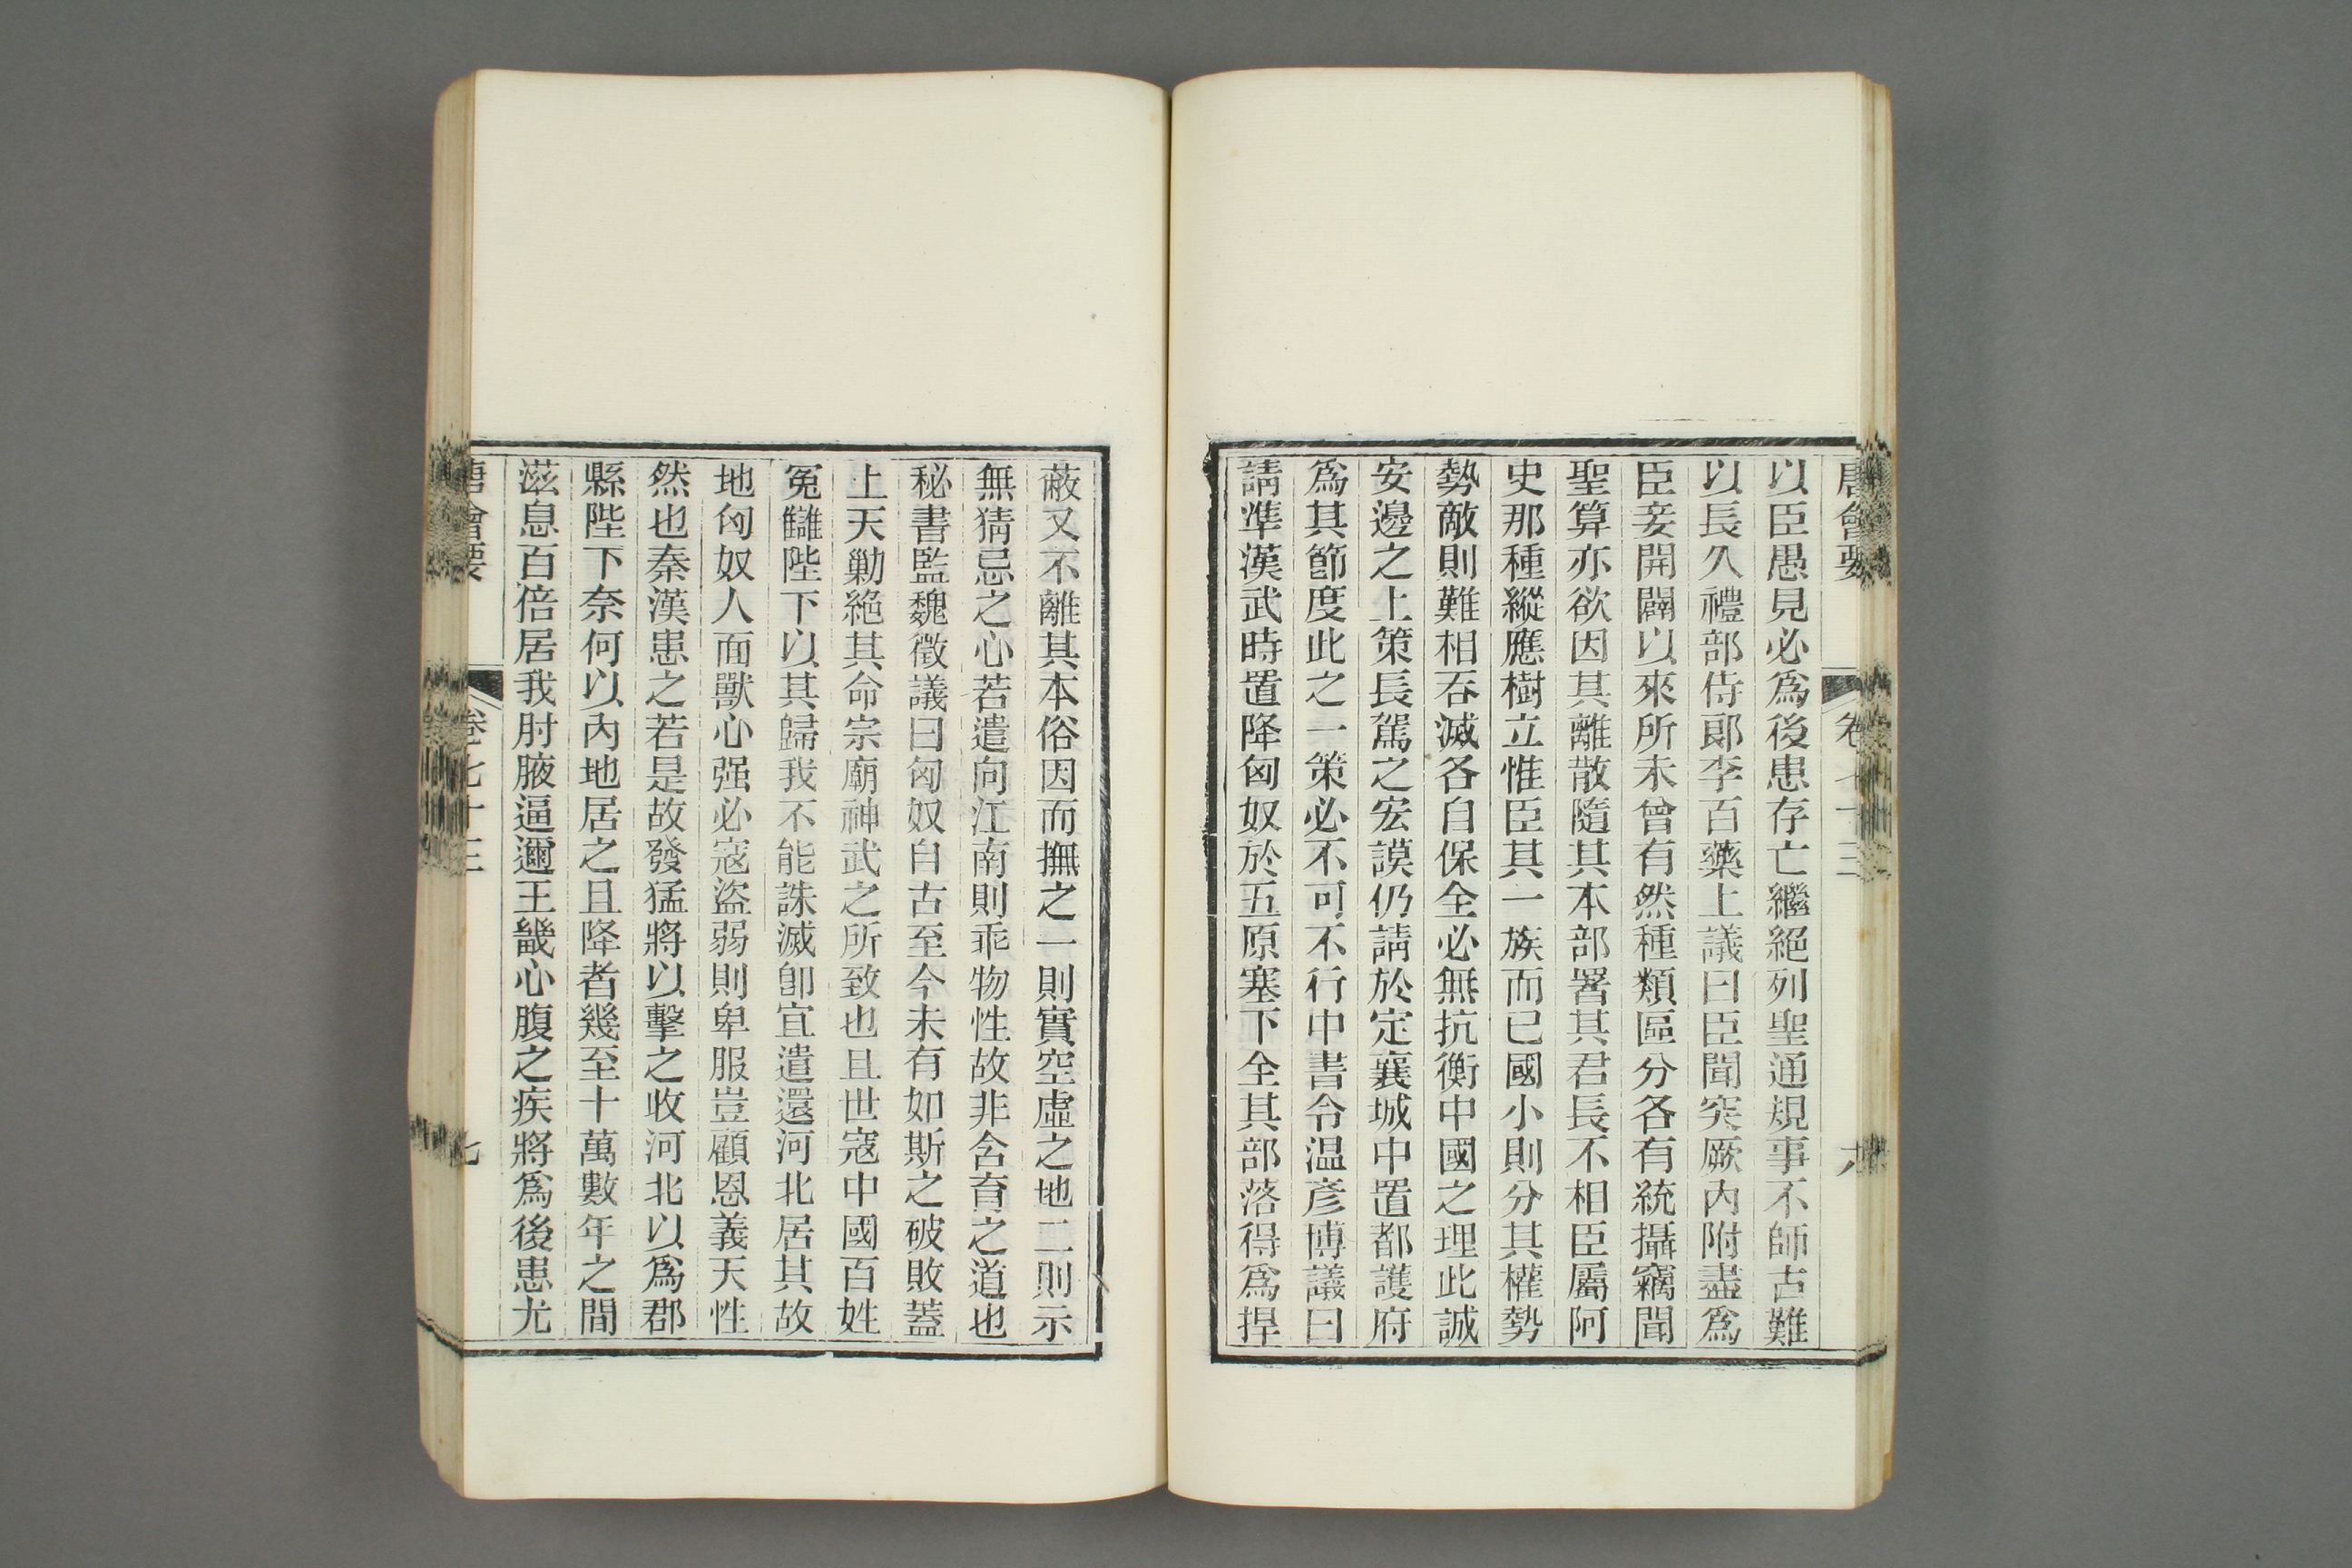 唐會要 卷七十三 六
以臣愚見必爲後患存亡繼絕列聖通規事不師古難
以長久禮部侍郎李百藥上議曰臣聞突厥內附盡爲
臣妾開闢以來所未曾有然種類區分各有統攝竊聞
聖算亦欲因其離散隨其本部署其君長不相臣屬阿
史那種縱應樹立惟臣其一族而已國小則分其權勢
勢敵則難相吞滅各自保全必無抗衡中國之理此誠
安邊之上策長駕之宏謨仍請於定襄城中置都護府
爲其節度此之一策必不可不行中書令温彥博議曰
請準漢武時置降匈奴於五原塞下全其部落得爲捍
蔽又不離其本俗因而撫之一則實空虛之地二則示
無猜忌之心若遣向江南則乖物性故非含育之道也
秘書監魏徵議曰匈奴自古至今未有如斯之破敗蓋
上天勦絕其命宗廟神武之所致也且世寇中國百姓
冤讎陛下以其歸我不能誅滅卽宜遣還河北居其故
地匈奴人面獸心强必寇盜弱則卑服豈顧恩義天性
然也秦漢患之若是故發猛將以擊之收河北以爲郡
縣陛下奈何以內地居之且降者幾至十萬數年之間
滋息百倍居我肘腋逼邇王畿心腹之疾將爲後患尤
唐會要 卷七十三 七